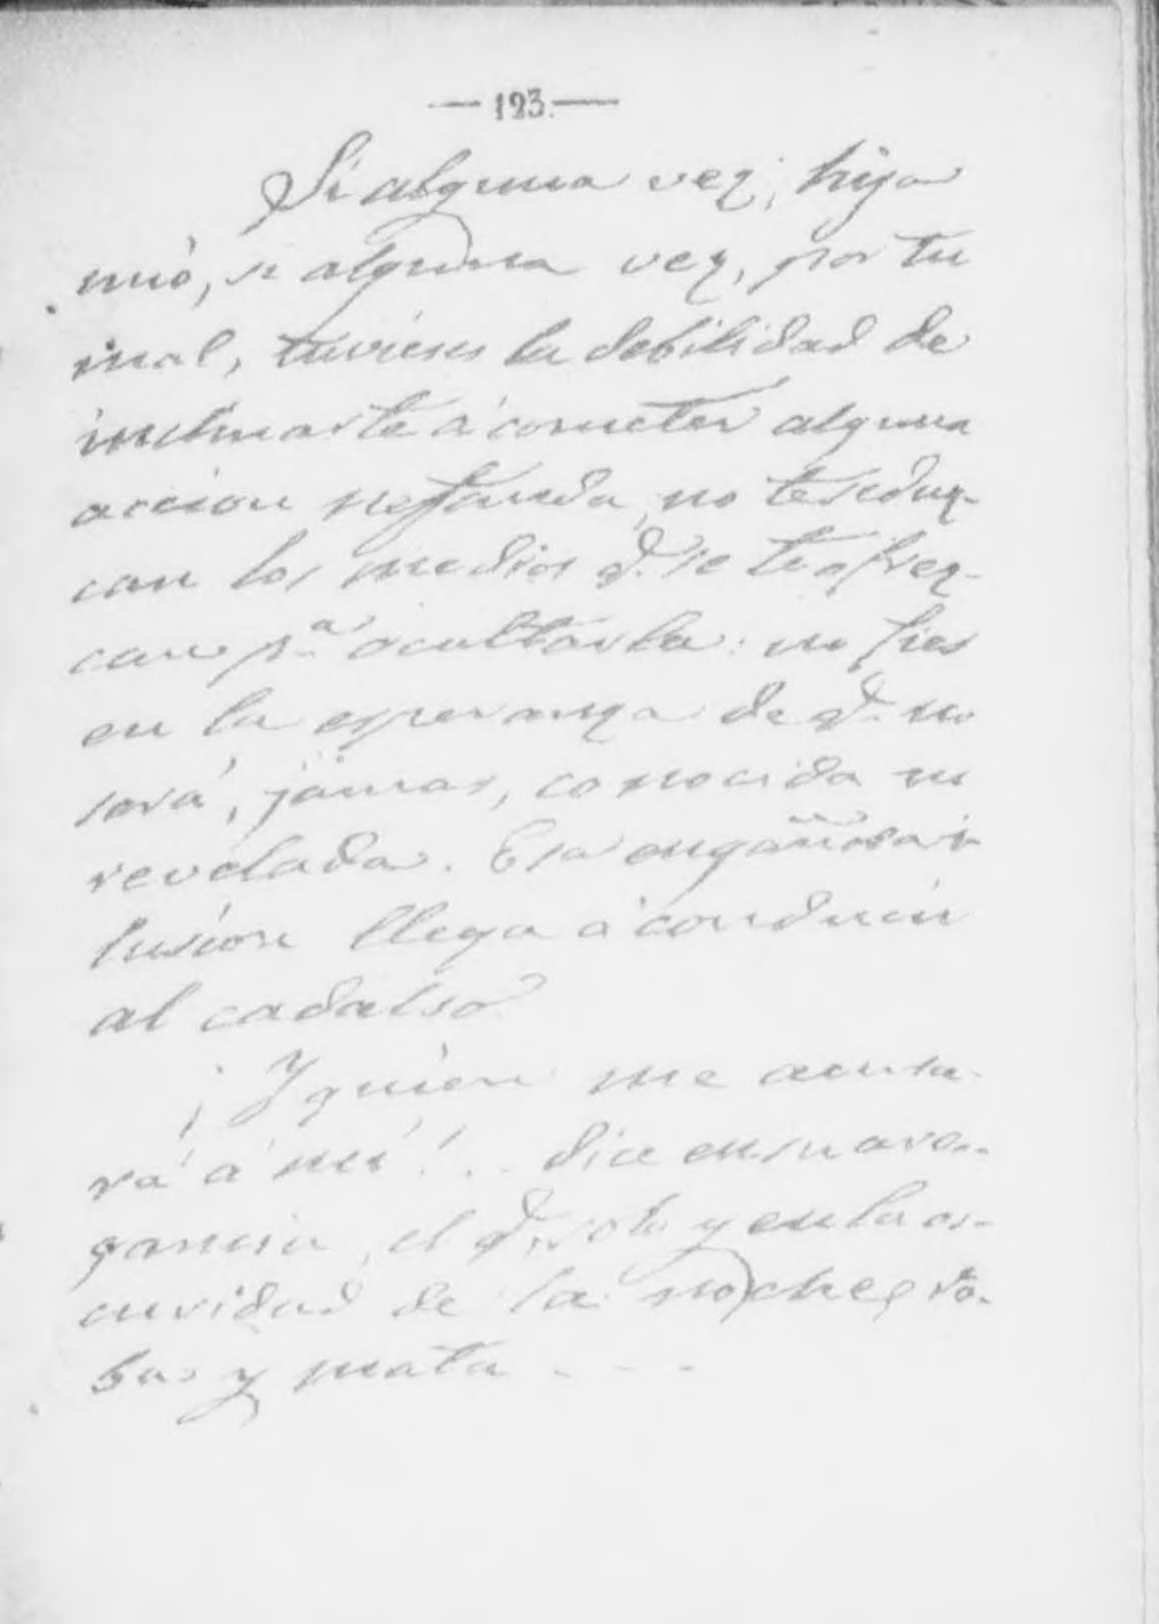 — 123. —
Si alguna vez, hijo
mio, si alguna vez, por tu
mal, tuvieses la debilidad de
inclinarte á cometer alguna
accion nefanda, no te seduz-
can los medios q.e se te ofrez-
can p.a ocultarla: no fies
en la esperanza de q.e no
será, jamas, conocida ni
revelada. Esa engañosa i-
lusion llega á conducir
al cadalso.
¡Y quien me acusa-
rá á mí!... dice en su arro-
gancia, el q.e, solo y en la os-
curidad de la noche, ro-
ba y mata . - - -